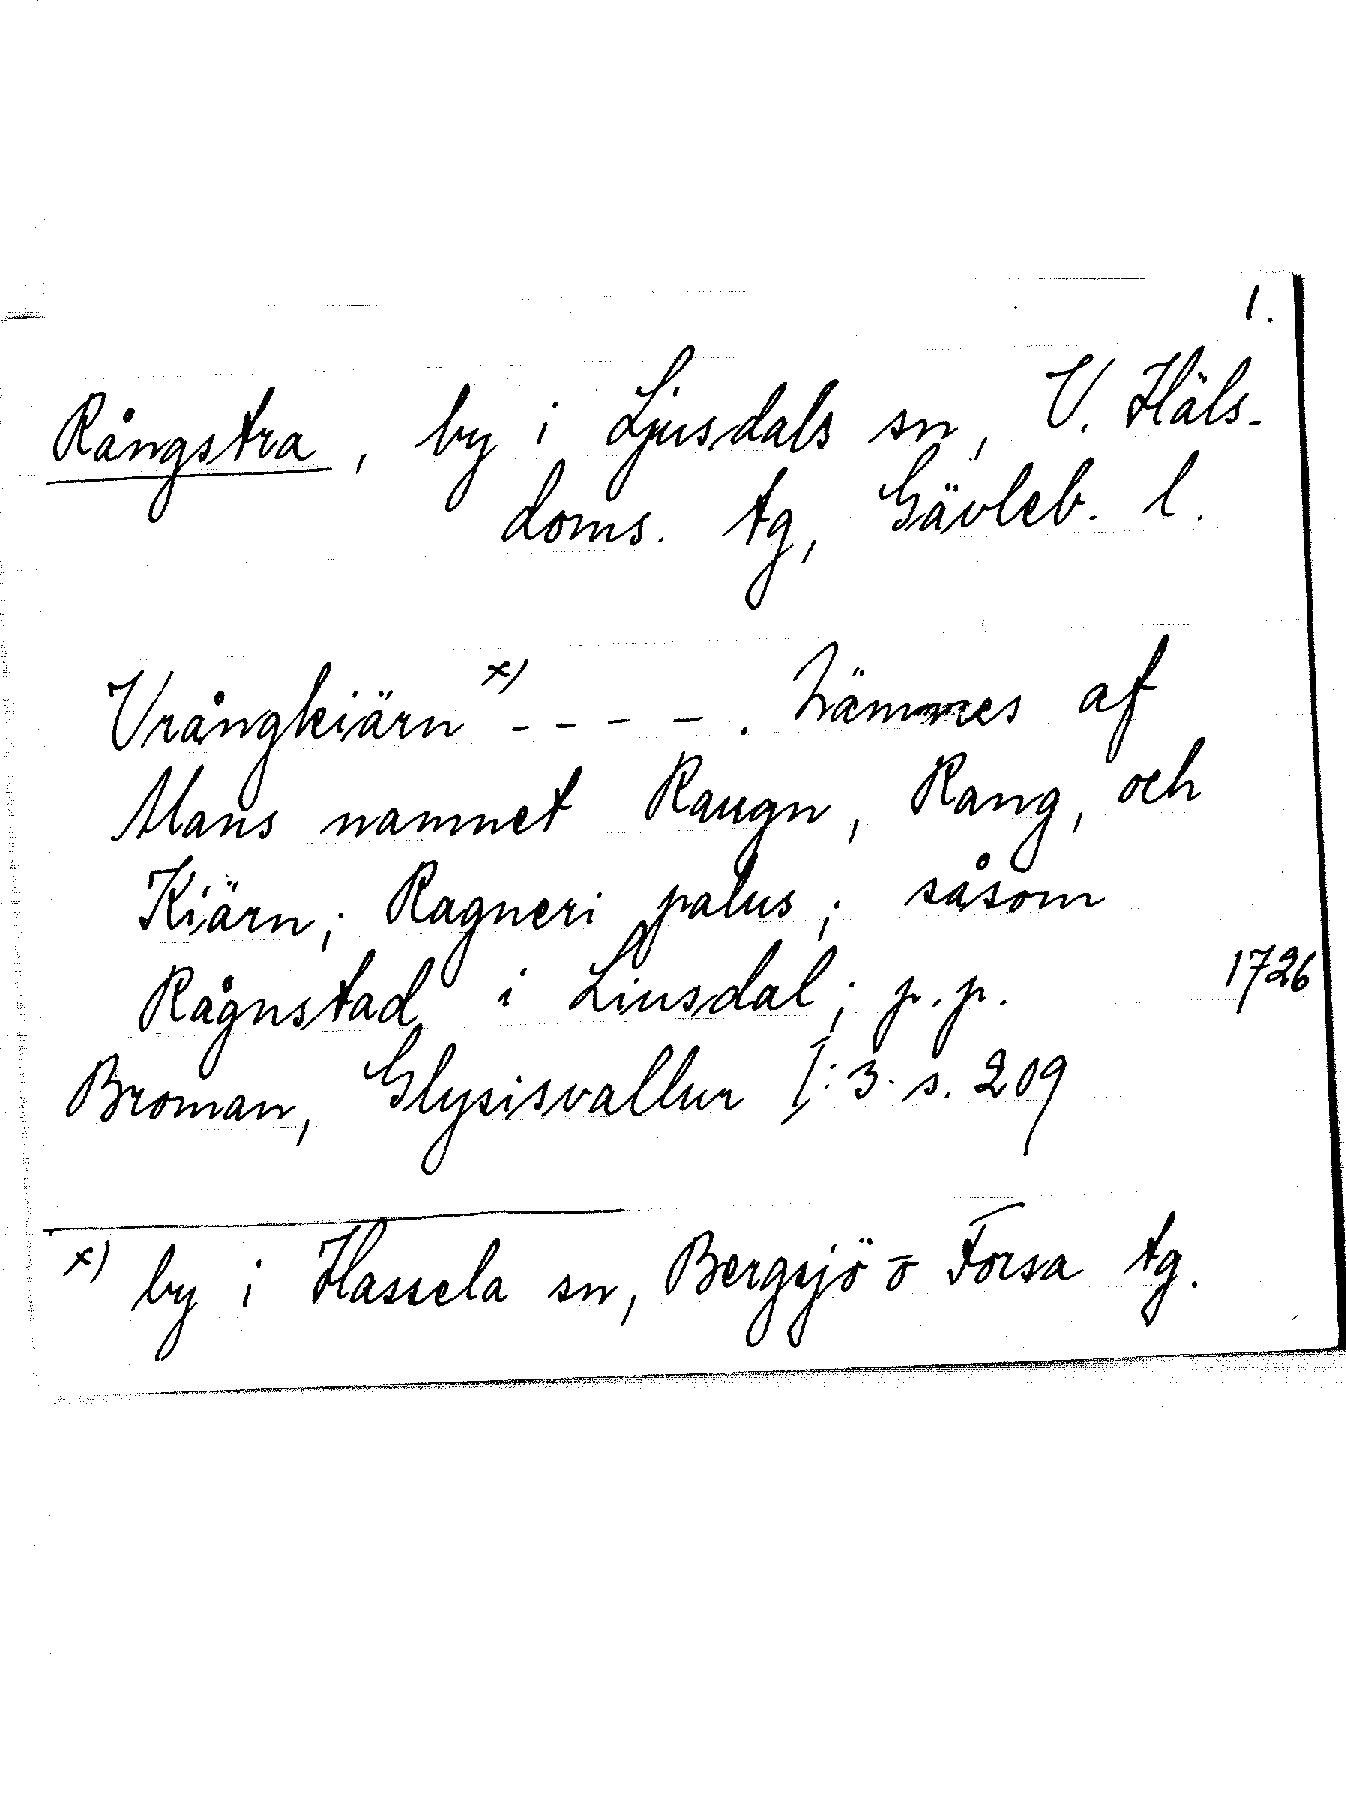 1.
Rångstra, by i Ljusdals sn, V. Häls-
doms. tg, Gävleb. l.
Vrångkiärn x) - - - - . Nämnes af
Mans namnet Raugn, Rang, och
Kiärn; Ragneri palus; såsom
Rågnstad i Liusdal; p.p. 1726
Broman, Glysisvallur I: 3. s. 209
x) by i Hassela sn, Bergsjö o Forsa tg.